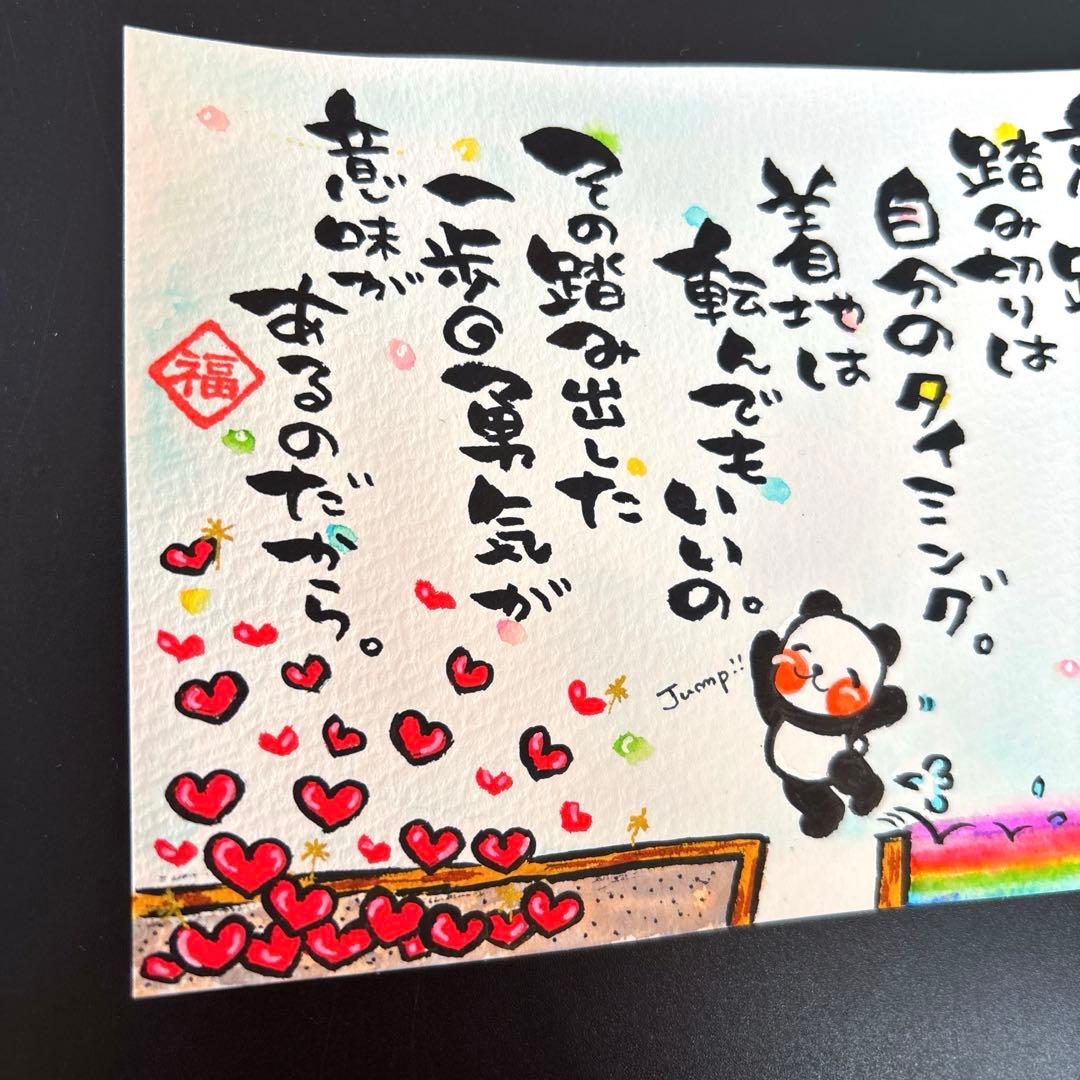 踏み切りは
自分のタイミング。
着地は
転んでもいいの。
その踏み出した
一歩の勇気が
意味が
あるのだから。
福
Jump!!